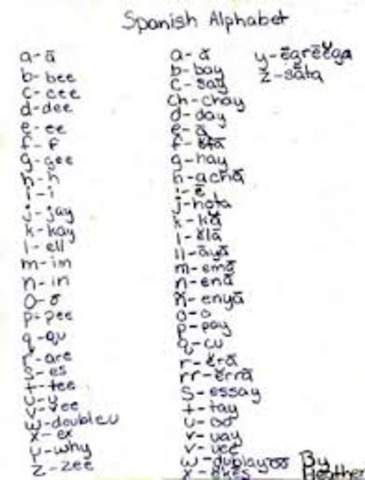 Spanish Alphabet
a-ā
b-bee
c-cee
d-dee
e-ee
f-f
g-gee
h-h
i-i
j-jay
k-kay
l-ell
m-im
n-in
o-o
p-pee
q-qu
r-are
s-es
t-tee
u-u
v-vee
w-doubleu
x-ex
y-why
z-zee
a-ă
b-bay
c-say
ch-chay
d-day
e-ā
f-
g-hay
h-achā
i-ē
j-hota
k-kă
l-ĕlā
ll-āyā
m-emā
n-enā
ñ-enyā
o-o
p-pay
q-cu
r-ĕrā
rr-ĕrrā
s-essay
t-tay
u-oo
v-vay
v-vee
w-dublayoo
x-ekes
y-ēgrēĕga
z-sāta
By
Heather